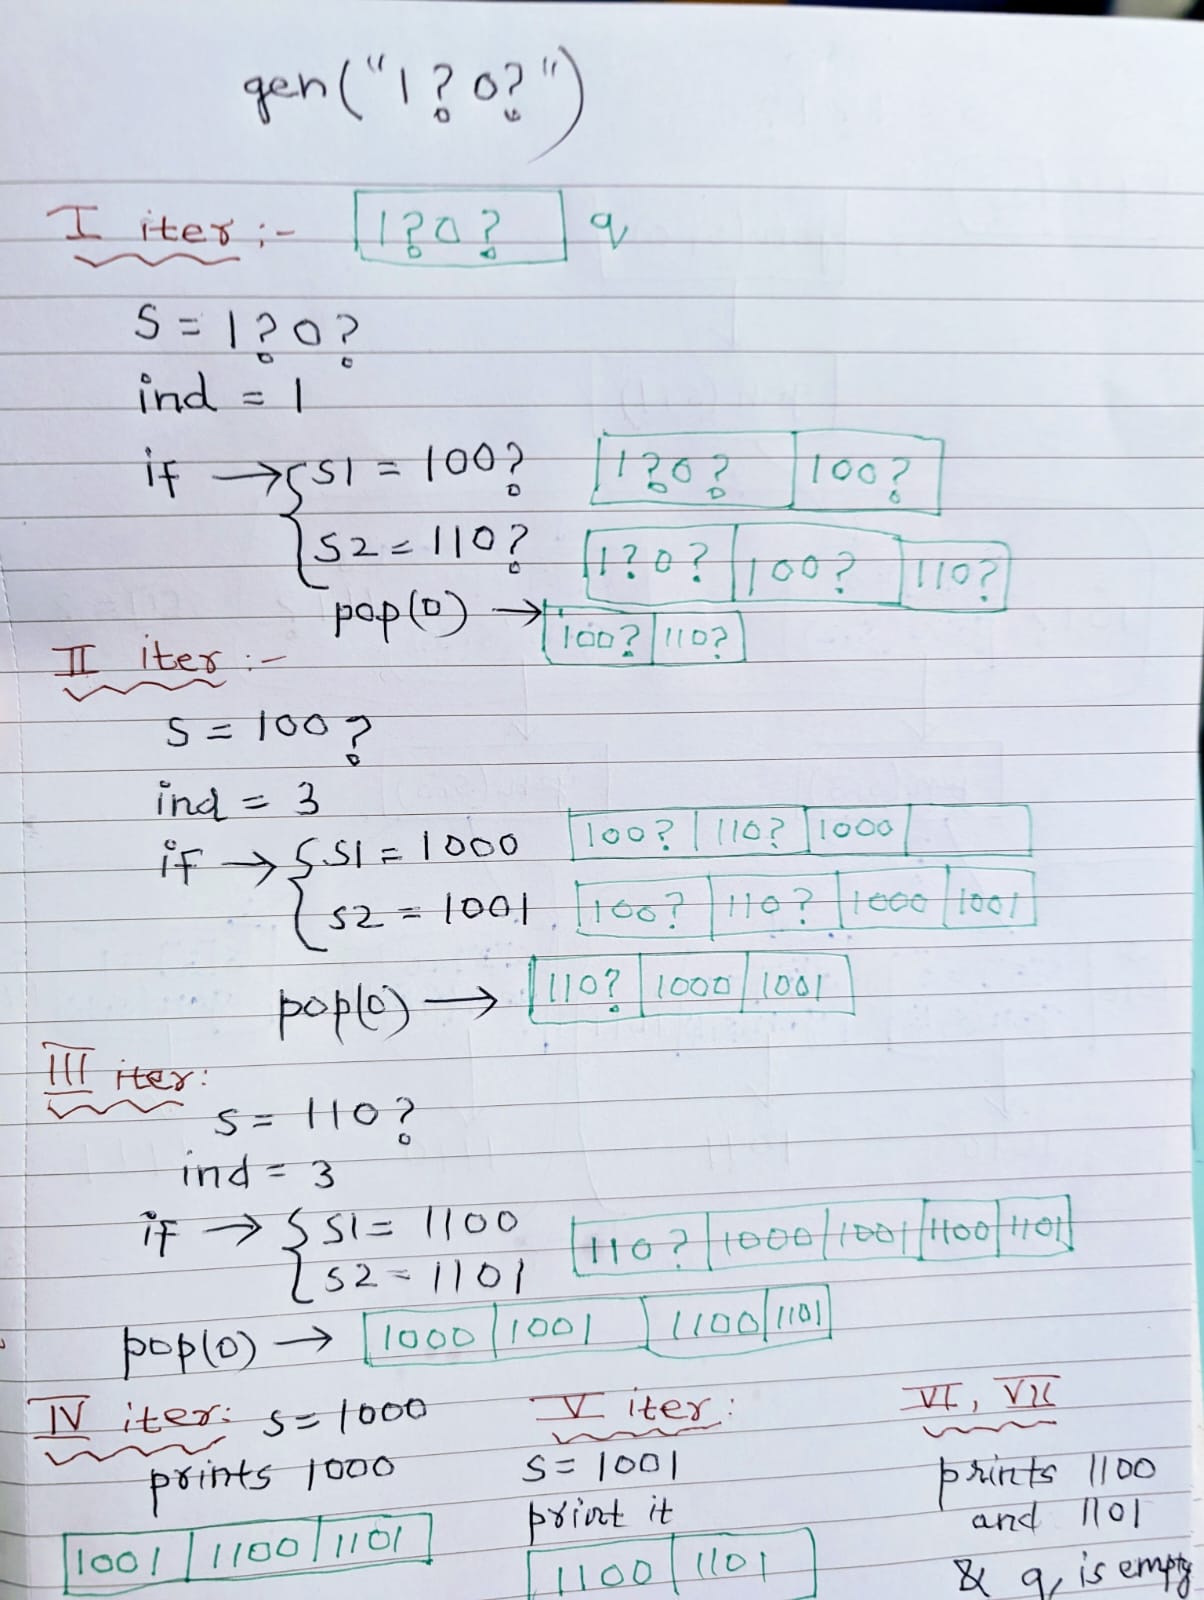 gen("1?0?")
I iter :- 1?0? q
S = 1?0?
ind = 1
if → { S1 = 100? 1?0? 100?
S2 = 110? 1?0? 100? 110?
pop(0) → 100? 110?
II iter :-
S = 100?
ind = 3
if → { S1 = 1000 100? 110? 1000
S2 = 1001 100? 110? 1000 1001
pop(0) → 110? 1000 1001
III iter:
S = 110?
ind = 3
if → { S1 = 1100 110? 1000 1001 1100 1101
S2 = 1101
pop(0) → 1000 1001 1100 1101
IV iter: S = 1000
prints 1000
1001 1100 1101
V iter:
S = 1001
print it
1100 1101
VI, VII
prints 1100
and 1101
& q is empty